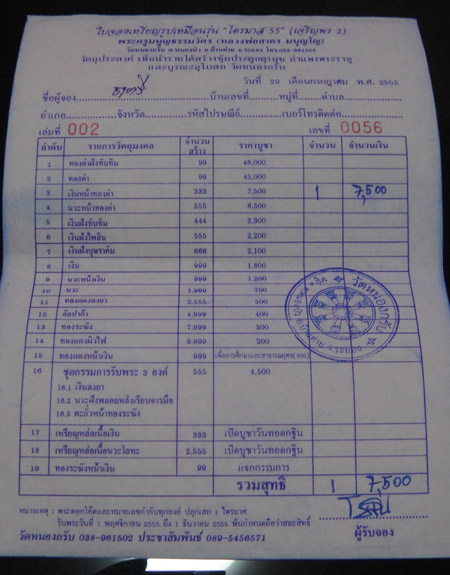 ใบจองเหรียญรูปเหมือนรุ่น "ไตรมาส 55" (เจริญพร 2)
พระครูมนูญธรรมวัตร (หลวงพ่อสาคร มนุญโญ)
วัดหนองกรับ ต.หนองบัว อ.บ้านค่าย จ.ระยอง โทร 038-961502
วัตถุประสงค์ เพื่อนำรายได้สร้างซุ้มประตูจตุรมุข กำแพงพระราหู
และบูรณะอุโบสถ วัดหนองกรับ
วันที่ 29 เดือนกรกฎาคม พ.ศ. 2555
ชื่อผู้จอง บ้านเลขที่ หมู่ที่ ตำบล
อำเภอ จังหวัด รหัสไปรษณีย์ เบอร์โทรติดต่อ
เล่มที่ 002 เลขที่ 0056
ลำดับ รายการวัตถุมงคล จำนวนสร้าง ราคาบูชา จำนวน จำนวนเงิน
1 ทองคำฝังทับทิม 99 46,000
2 ทองคำ 99 45,000
3 เงินหน้าทองคำ 333 7,500 1 7,500
4 นวะหน้าทองคำ 555 6,500
5 เงินฝังทับทิม 444 2,300
6 เงินฝังไพลิน 555 2,200
7 เงินฝังบุษราคัม 666 2,100
8 เงิน 999 1,800
9 นวะหน้าเงิน 999 1,200
10 นวะ 1,999 700
11 ทองแดงลงยา 2,555 500
12 อัลปาก้า 4,999 400
13 ทองระฆัง 7,999 300
14 ทองแดงผิวไฟ 9,999 200
15 ทองแดงหน้าเงิน 999
16 ชุดกรรมการรับพระ 3 องค์ 555 4,500
16.1 เงินลงยา
16.2 นวะฝังพลอยหลังเรียบจารมือ
16.3 ตะกั่วหน้าทองระฆัง
17 เหรียญหล่อเนื้อเงิน 333 เปิดบูชาวันทอดกฐิน
18 เหรียญหล่อเนื้อนวะโลหะ 2,555 เปิดบูชาวันทอดกฐิน
19 ทองระฆังหน้าเงิน 99 แจกกรรมการ
รวมสุทธิ 1 7,500
วัดหนองกรับ
หมายเหตุ : พระตอกโค๊ตและหมายเลขกำกับทุกองค์ ปลุกเสก 1 ไตรมาส
รับพระวันที่ 1 พฤศจิกายน 2555 ถึง 1 ธันวาคม 2555 พ้นกำหนดถือว่าสละสิทธิ์
วัดหนองกรับ 038-961502 ประชาสัมพันธ์ 089-5456571 ผู้รับจอง